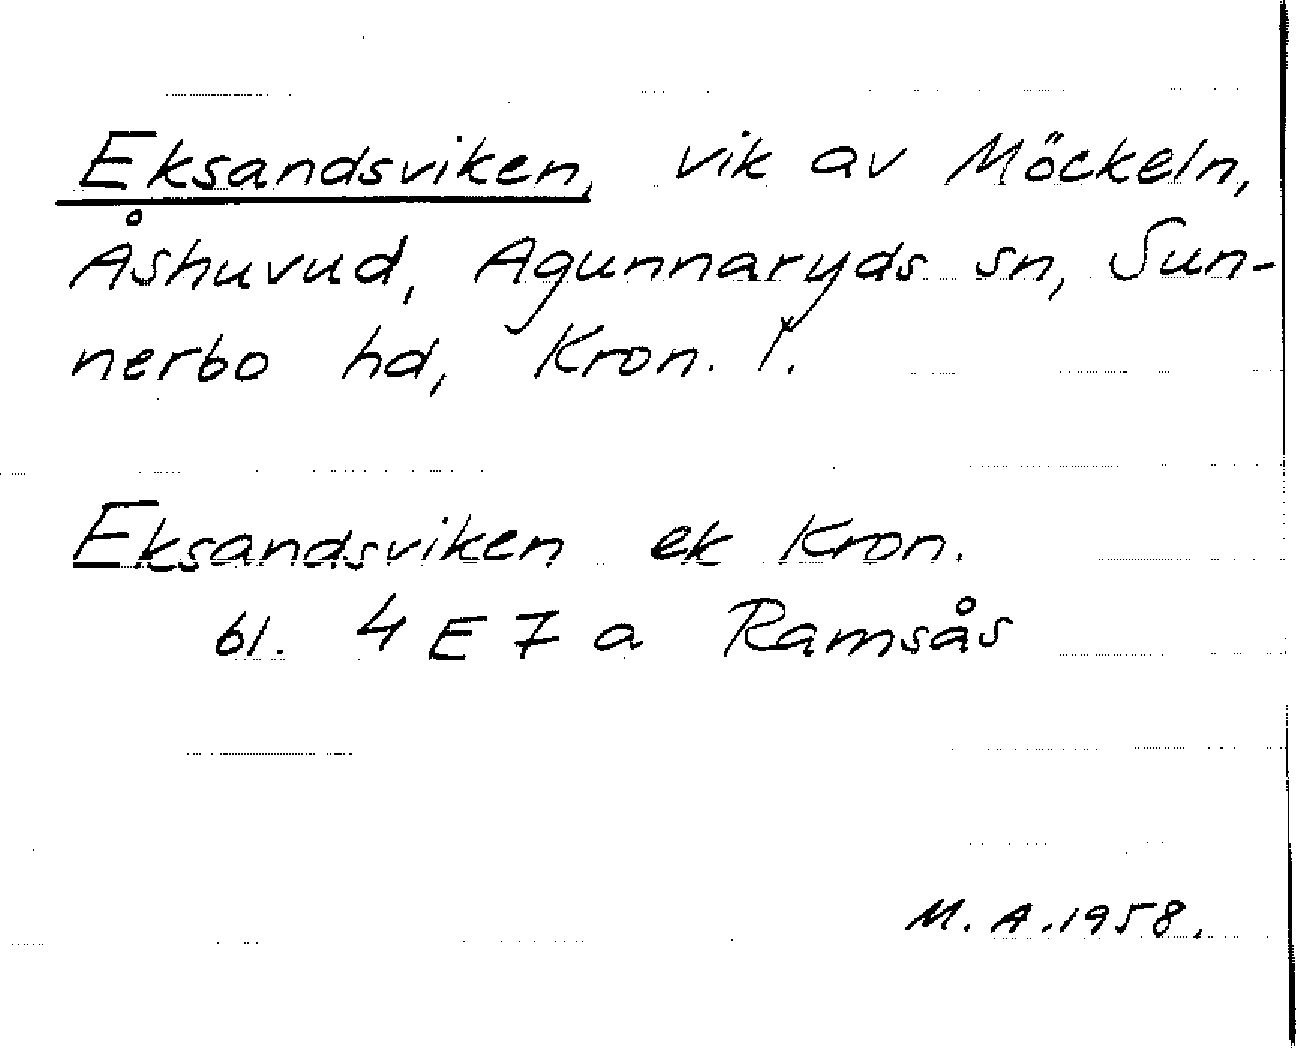 Eksandsviken, vik av Möckeln,
Åshuvud, Agunnaryds sn, Sun-
nerbo hd, Kron. l.
Eksandsviken ek Kron.
bl. 4 E 7 a Ramsås
M. A. 1958.